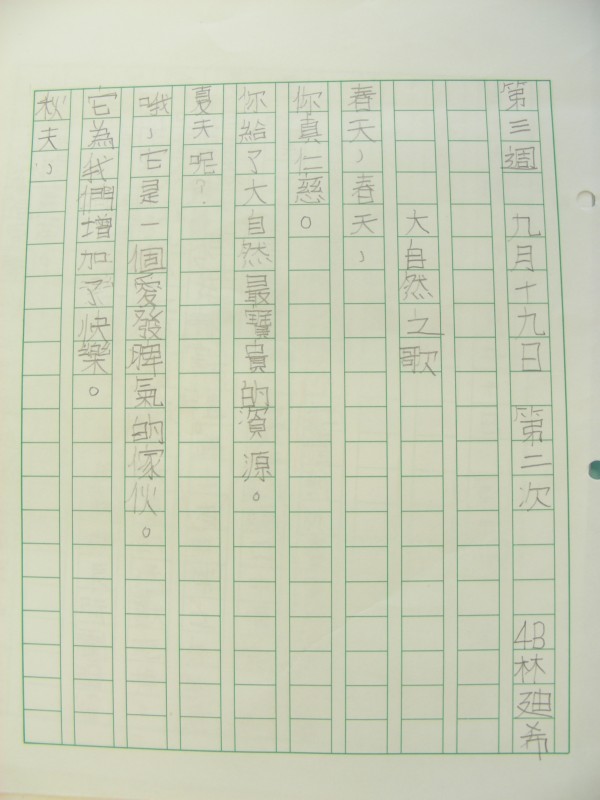 第三週 九月十九日 第二次 4B林廸希
大自然之歌
春天，春天，
你真仁慈。
你給了大自然最寶貴的資源。
夏天呢？
哦，它是一個愛發脾氣的傢伙。
它為我們增加了快樂。
秋天，